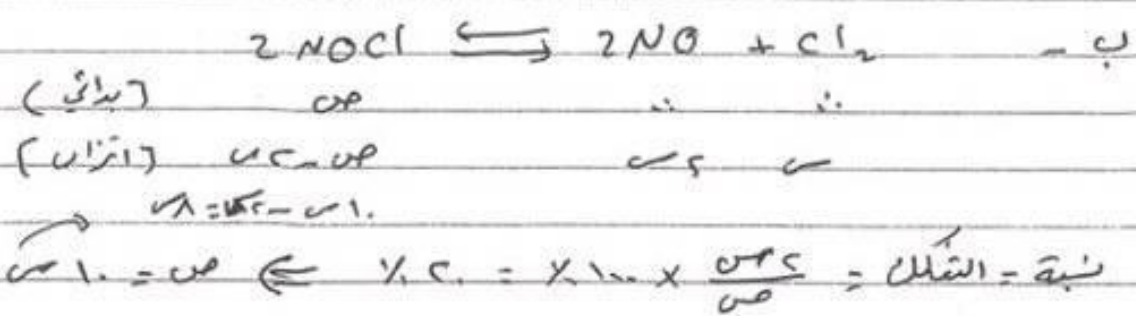 ب - 2NOCl ⇌ 2NO + Cl₂
(بدائي) ص ٠٠ ٠٠
(اتزان) ص - ٢س ٢س س
١٠س - ٢س = ٨س
نسبة التفكك = ٢س/ص × ١٠٠٪ = ٢٠٪ ⇐ ص = ١٠س